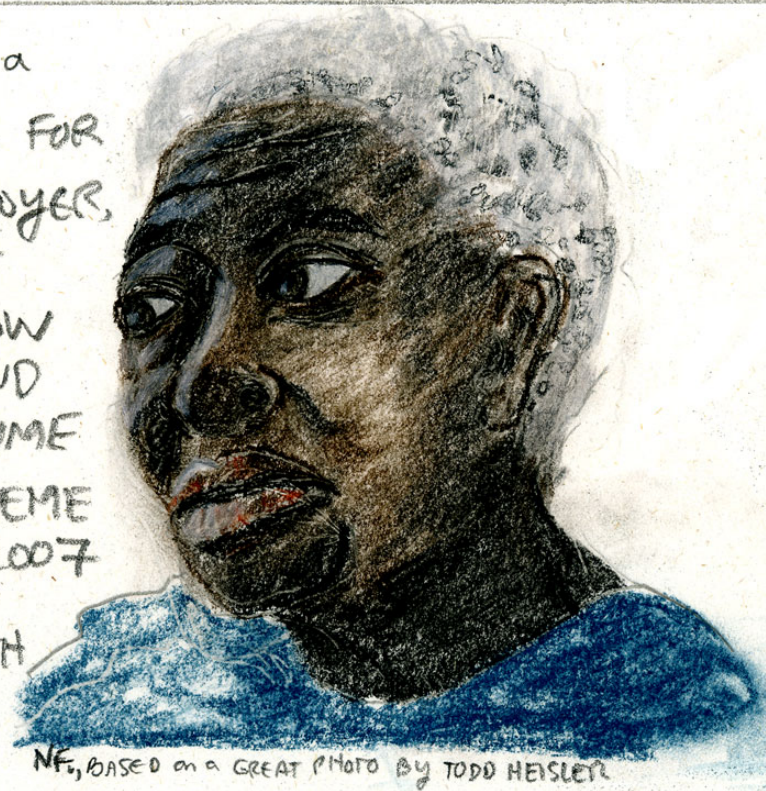 a
FOR
OYER,
OW
UD
OME
EME
2007
H
NF., BASED on a GREAT PHOTO By TODD HEISLER